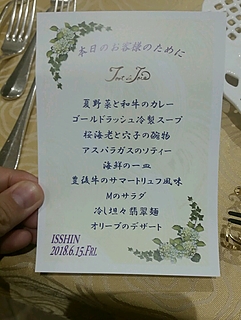 本日のお客様のために
夏野菜と和牛のカレー
ゴールドラッシュ冷製スープ
桜海老と穴子の碗物
アスパラガスのソティー
海鮮の一皿
豊後牛のサマートリュフ風味
Mのサラダ
冷し坦々翡翠麺
オリーブのデザート
ISSHIN
2018.6.15.FRI.